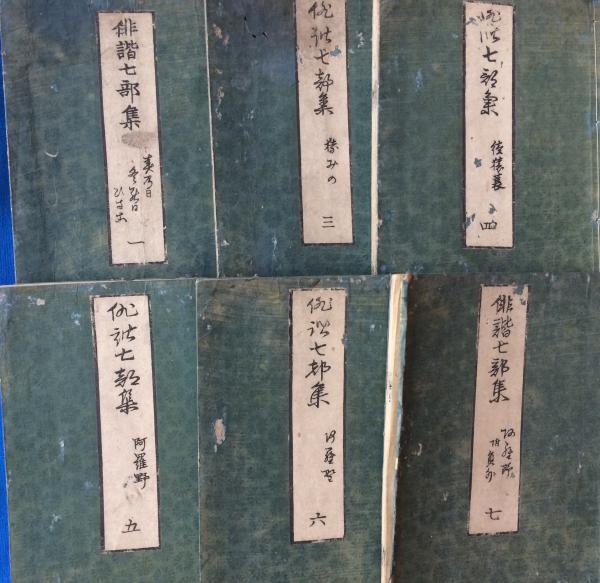 俳諧七部集
春乃日
冬の日
ひさご
一
俳諧七部集
猿みの
三
俳諧七部集
続猿蓑
四
俳諧七部集
阿羅野
五
俳諧七部集
阿羅野
六
俳諧七部集
阿羅野
附員外
七